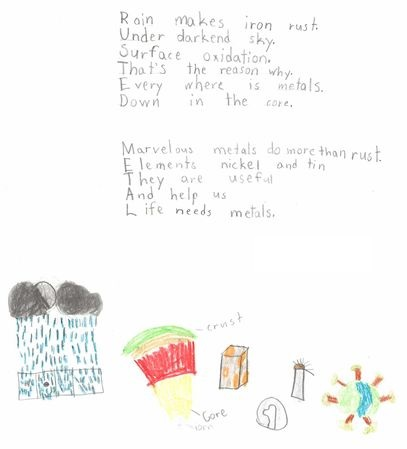 Rain makes iron rust.
Under darkend sky.
Surface oxidation.
That's the reason why.
Every where is metals.
Down in the core.
Marvelous metals do more than rust.
Elements nickel and tin
They are useful
And help us
Life needs metals.
crust
Core